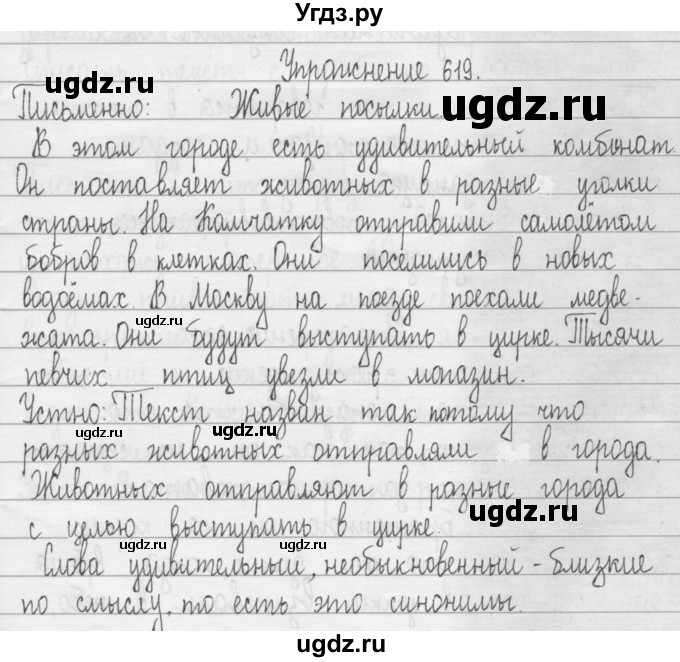 Угдз.ру
Упражнение 619.
ugdz.ru
ugdz.ru
Письменно: Живые посылки.
В этом городе есть удивительный комбинат.
Он поставляет животных в разные уголки
ugdz.ru
страны. На Камчатку отправили самолётом
бобров в клетках. Они поселились в новых
водоёмах. В Москву на поезде поехали медве-
ugdz.ru
жата. Они будут выступать в цирке. Тысячи
певчих птиц увезли в магазин.
Устно: Текст назван так потому что
ugdz.ru
ugdz.ru
разных животных отправляли в города.
Животных отправляют в разные города
ugdz.ru
с целью выступать в цирке.
ugdz.ru
ugdz.ru
Слова удивительный, необыкновенный - близкие
по смыслу, то есть это синонимы.
ugdz.ru